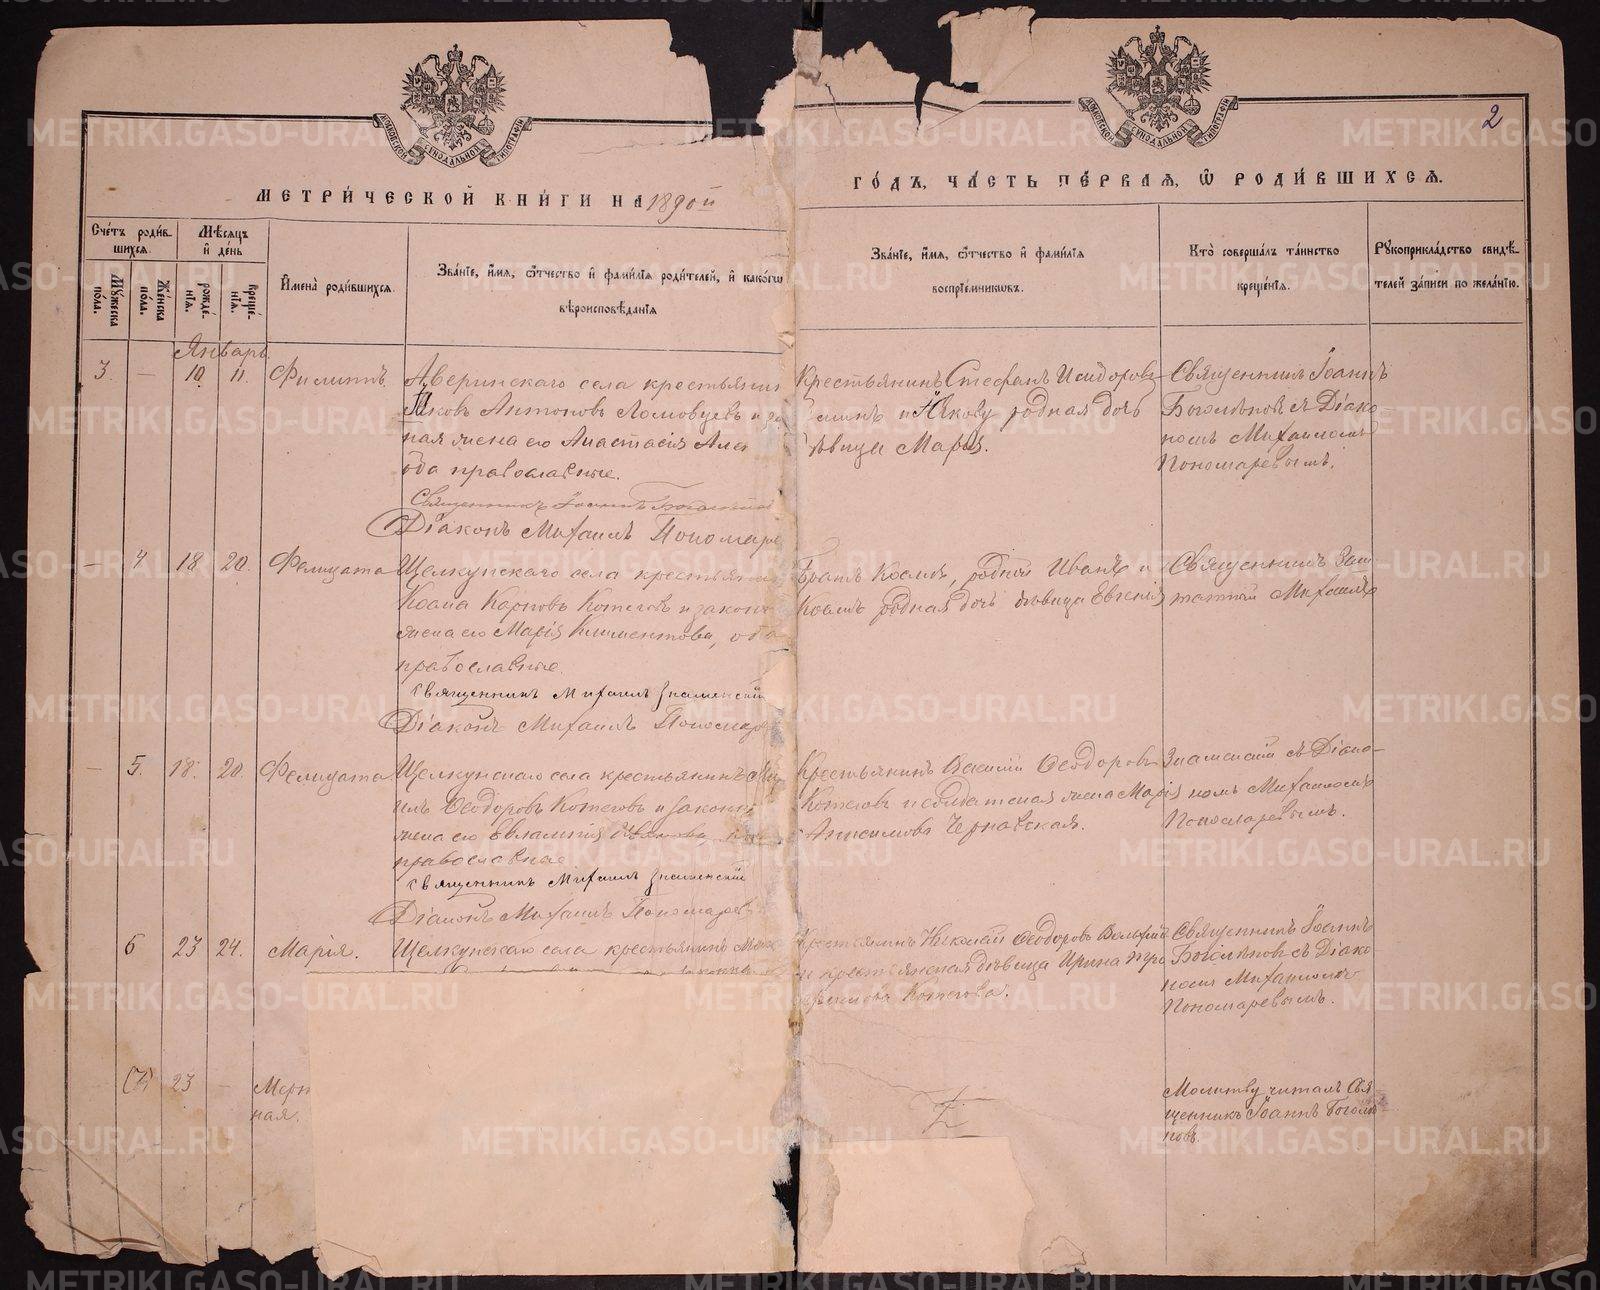 2
МЕТРИ́ЧЕСКОЙ КНИ́ГИ НА 1890й
ГО́ДЪ, ЧА́СТЬ ПЕ́РВАЯ, Ѡ РОДИ́ВШИХСЯ.
Сче́тъ роди́в-
шихся.
Мѣ́сяцъ
и де́нь
Му́жеска по́ла.
Же́нска по́ла.
рожде́-
нія.
креще́-
нія.
Имена̀ роди́вшихся.
Зва́ніе, и́мя, ѻ҆́тчество и фами́лія роди́телей, и како́гѡ
вѣроисповѣ́данія
Зва́ніе, и́мя, ѻ҆́тчество и фами́лія
воспріе́мниковъ.
Кто̀ соверша́лъ та́инство
креще́нія.
Рукоприкла́дство свидѣ́-
телей за́писи по жела́нію.
Январь
3. — 10 11. Филиппъ.
Аверинскаго села крестьянин
Яковъ Антоновъ Ломовцевъ и
ная жена его Анастасія
оба православные.
Священникъ Іоаннъ
Діаконъ Михаилъ Пономаре
Крестьянинъ Стефанъ Исидоровъ
и Якову родная дочь
дѣвица Марія.
Священникъ Іоаннъ
Боголѣповъ съ Діако-
номъ Михаиломъ
Пономаревымъ.
— 4 18 20. Фелицата
Щелкунскаго села крестьянин
Косма Карповъ Котеговъ и закон
жена его Марія Климентова, оба
православные.
Священникъ Михаилъ Знаменскій
Діаконъ Михаилъ Пономар
Братъ Космы, родной Иванъ и
Космѣ родная дочь дѣвица Евгенія
Священникъ Заш-
татный Михаилъ
— 5. 18. 20. Фелицата
Щелкунскаго села крестьянинъ
илъ Ѳеодоровъ Котеговъ и закон
жена его Евлампія Иванова,
православные.
Священникъ Михаилъ Знаменскій
Діаконъ Михаилъ Пономарев
Крестьянинъ Василій Ѳеодоровъ
Котеговъ и солдатская жена Марія
Анисимова Чернавская.
Знаменскій съ Діако-
номъ Михаиломъ
Пономаревымъ.
6 23 24. Марія.
Щелкунскаго села крестьянинъ
Крестьянинъ Николай Ѳеодоровъ
и крестьянская дѣвица Ирина
Котегова.
Священникъ Іоаннъ
Боголѣповъ съ Діако
номъ Михаиломъ
Пономаревымъ.
(7) 23 — Мерт
ная.
Молитву читалъ Свя-
щенникъ Іоаннъ Боголѣ
повъ.
METRIKI.GASO-URAL.RU